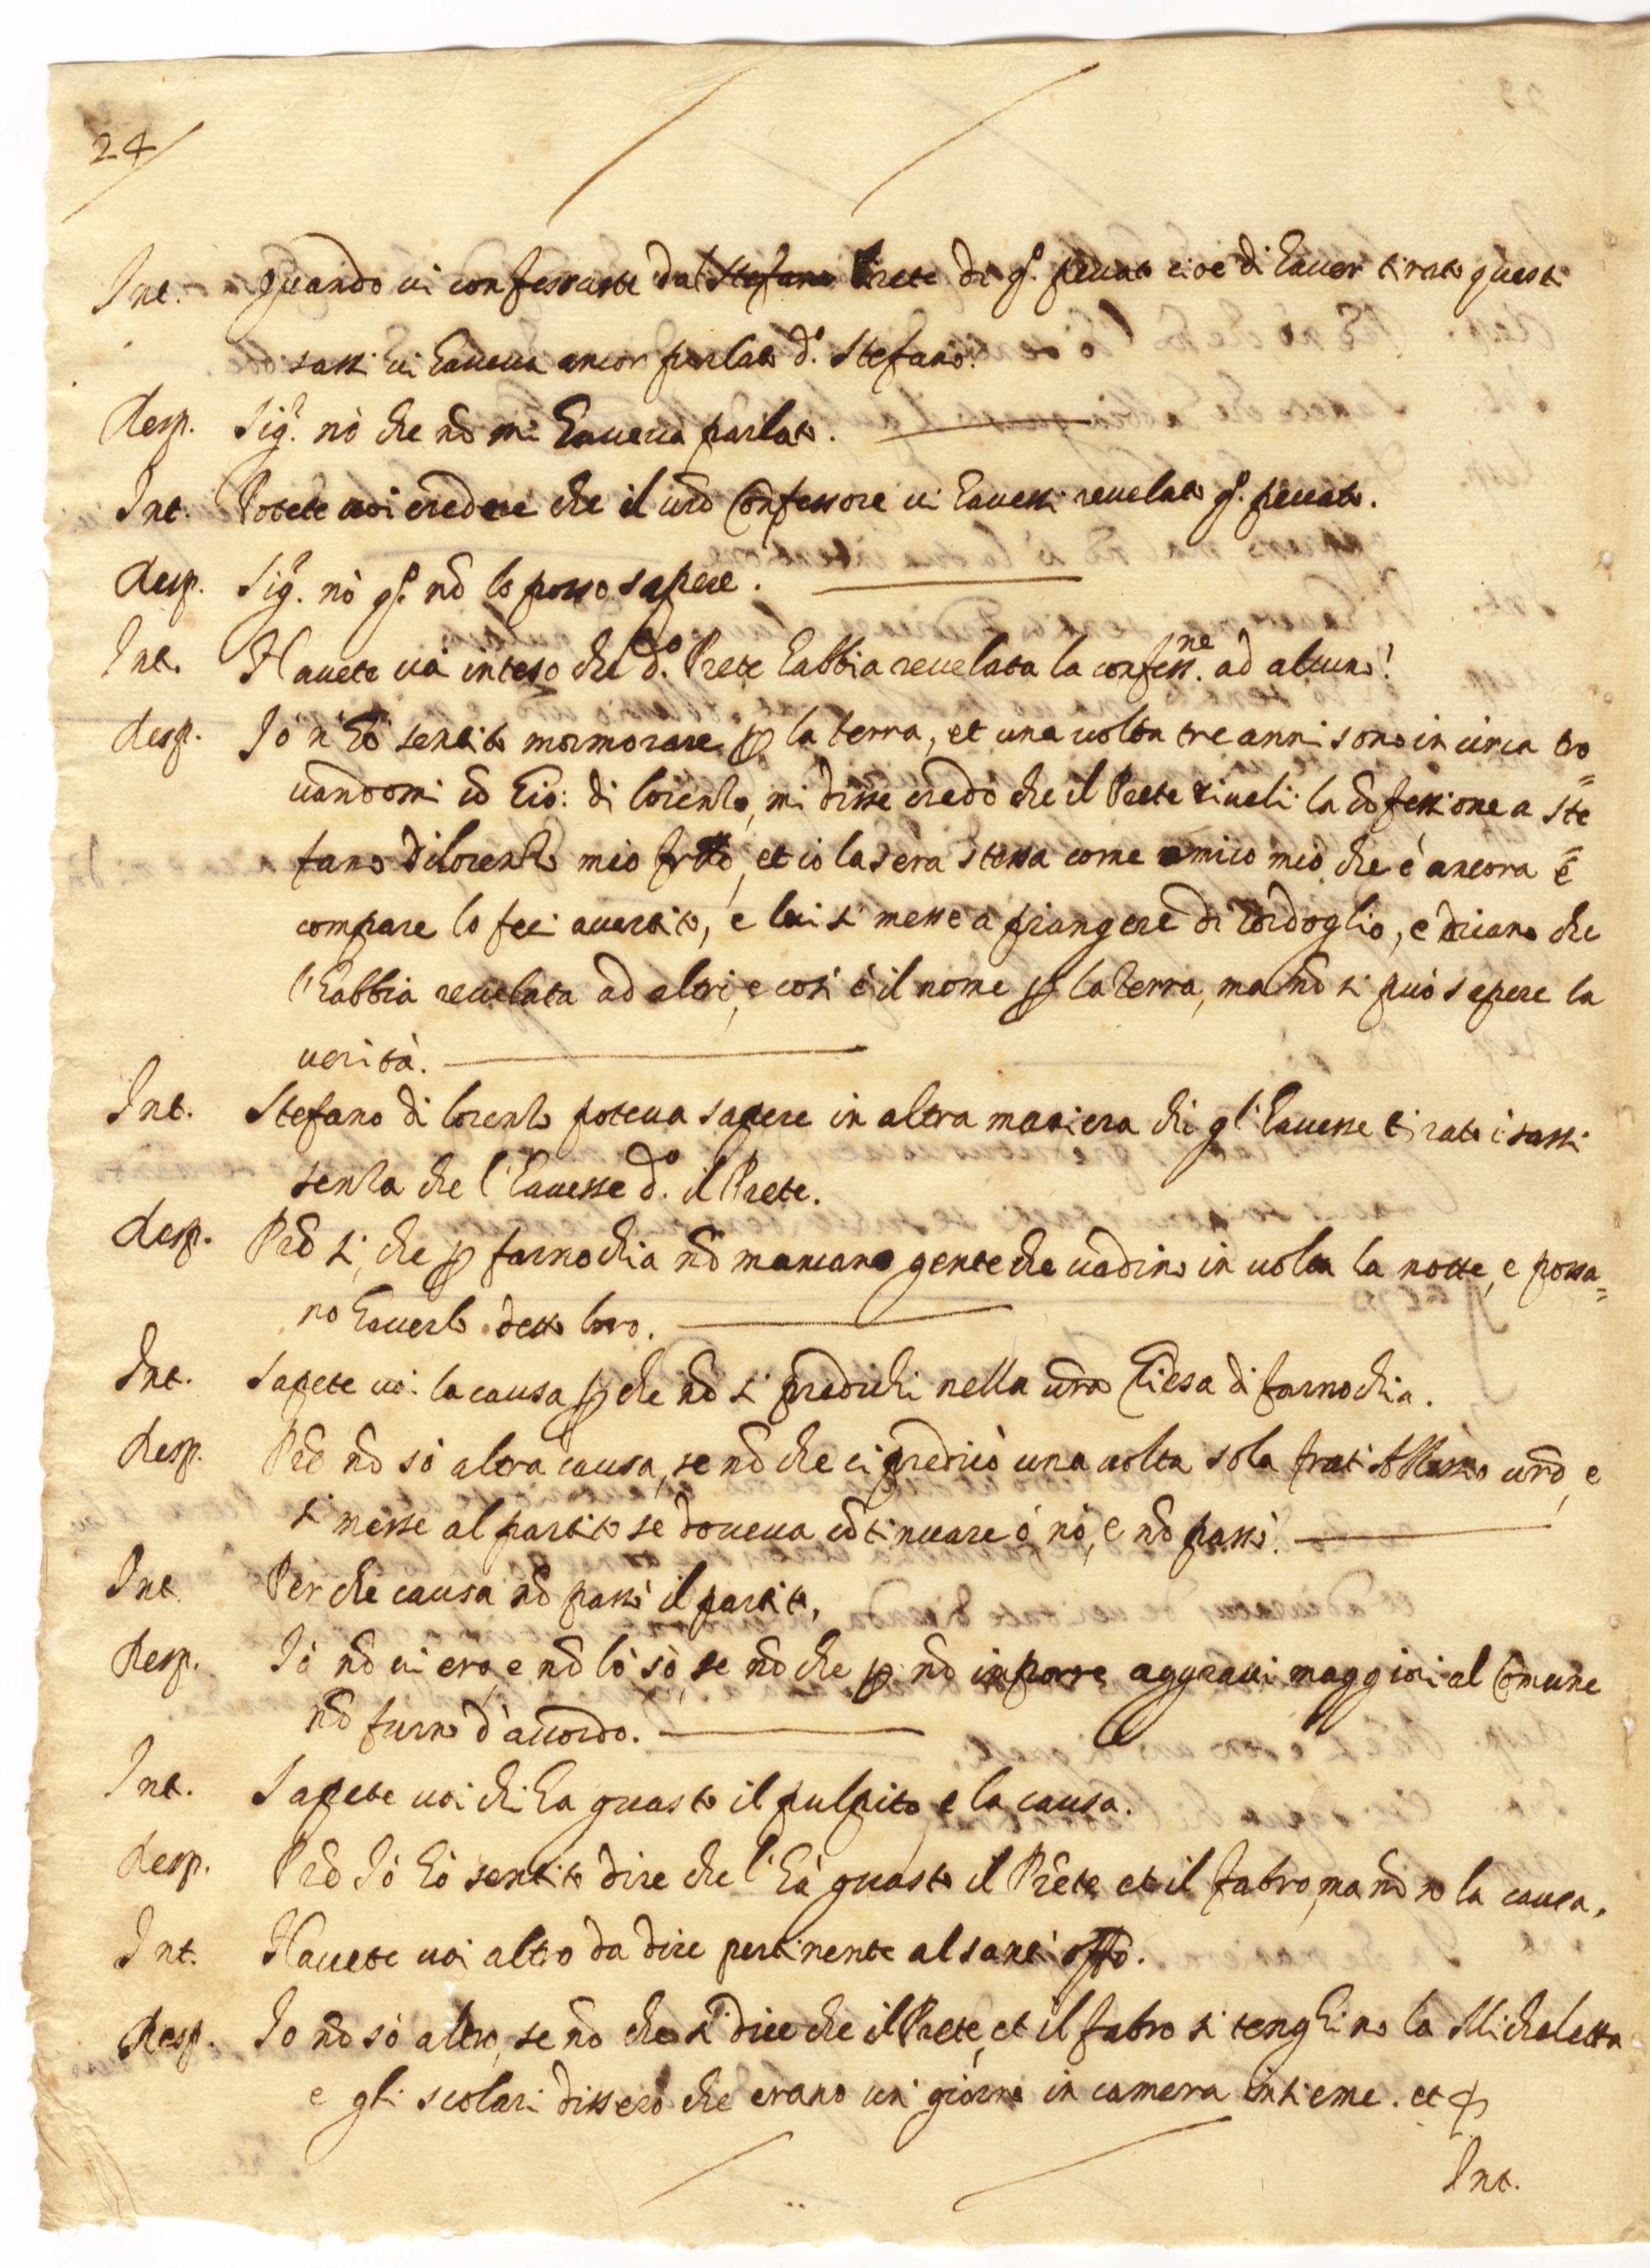 24
Int. Quando vi confessaste dal Stefano Prete di q.o peccato cioè di haver tirato questi
sassi vi haveva ancor parlato d.o Stefano.
Resp. Sig.r nò che nõ mi haveva parlato.
Int. Potete voi credere che il vr̃o Confessore vi havessi revelato q.o peccato.
Resp. Sig.r nò q.o nõ lo posso sapere.
Int. Havete voi inteso che d.o Prete habbia revelata la confess.ne ad alcuno!
Resp. Io n'hò sentito mormorare p la terra, et una volta tre anni sono in circa tro=
vandomi cõ Gio: di lorenzo, mi disse credo che il Prete riveli la cõfessione a Ste=
fano di lorenzo mio fr̃ello, et io la sera stessa come amico mio che è ancora è
compare lo feci avertito, e lui si messe a piangere di cordoglio, e dicano che
l'habbia revelata ad altri, e così è il nome p la terra, ma nõ si può sapere la
verità.
Int. Stefano di lorenzo poteva sapere in altra maniera chi gl'havesse tirato i sassi
senza che l'havesse d.o il Prete.
Resp. Pr̃e si, che p farnochia nõ mancano gente che vadino in volta la notte, e possa=
no haverlo detto loro.
Int. Sapete voi la causa p che nõ si predichi nella vr̃a Chiesa di farnochia.
Resp. Pr̃e nõ sò altra causa, se nõ che ci predicò una volta sola frat' vr̃o, e
si messe al partito se doveva cõtinuare ò nò, e nõ passò.
Int. Per che causa nõ passò il partito,
Resp. Iò nõ vi ero, e nõ lò sò, se nõ che p nõ inporre aggravi maggiori al Comune
nõ furno d'accordo.
Int. Sapete voi chi ha guasto il pulpito e la causa.
Resp. Pr̃e Iò hò sentito dire che l'hà guasto il Prete et il fabro, ma nõ so la causa.
Int. Havete voi altro da dire pertinente al sant' offõ.
Resp. Io nõ sò altro, se nõ che si dice che il Prete, et il fabro si tenghino la Micheletta
e gli scolari dissero che erano un giorno in camera insieme. et
Int.